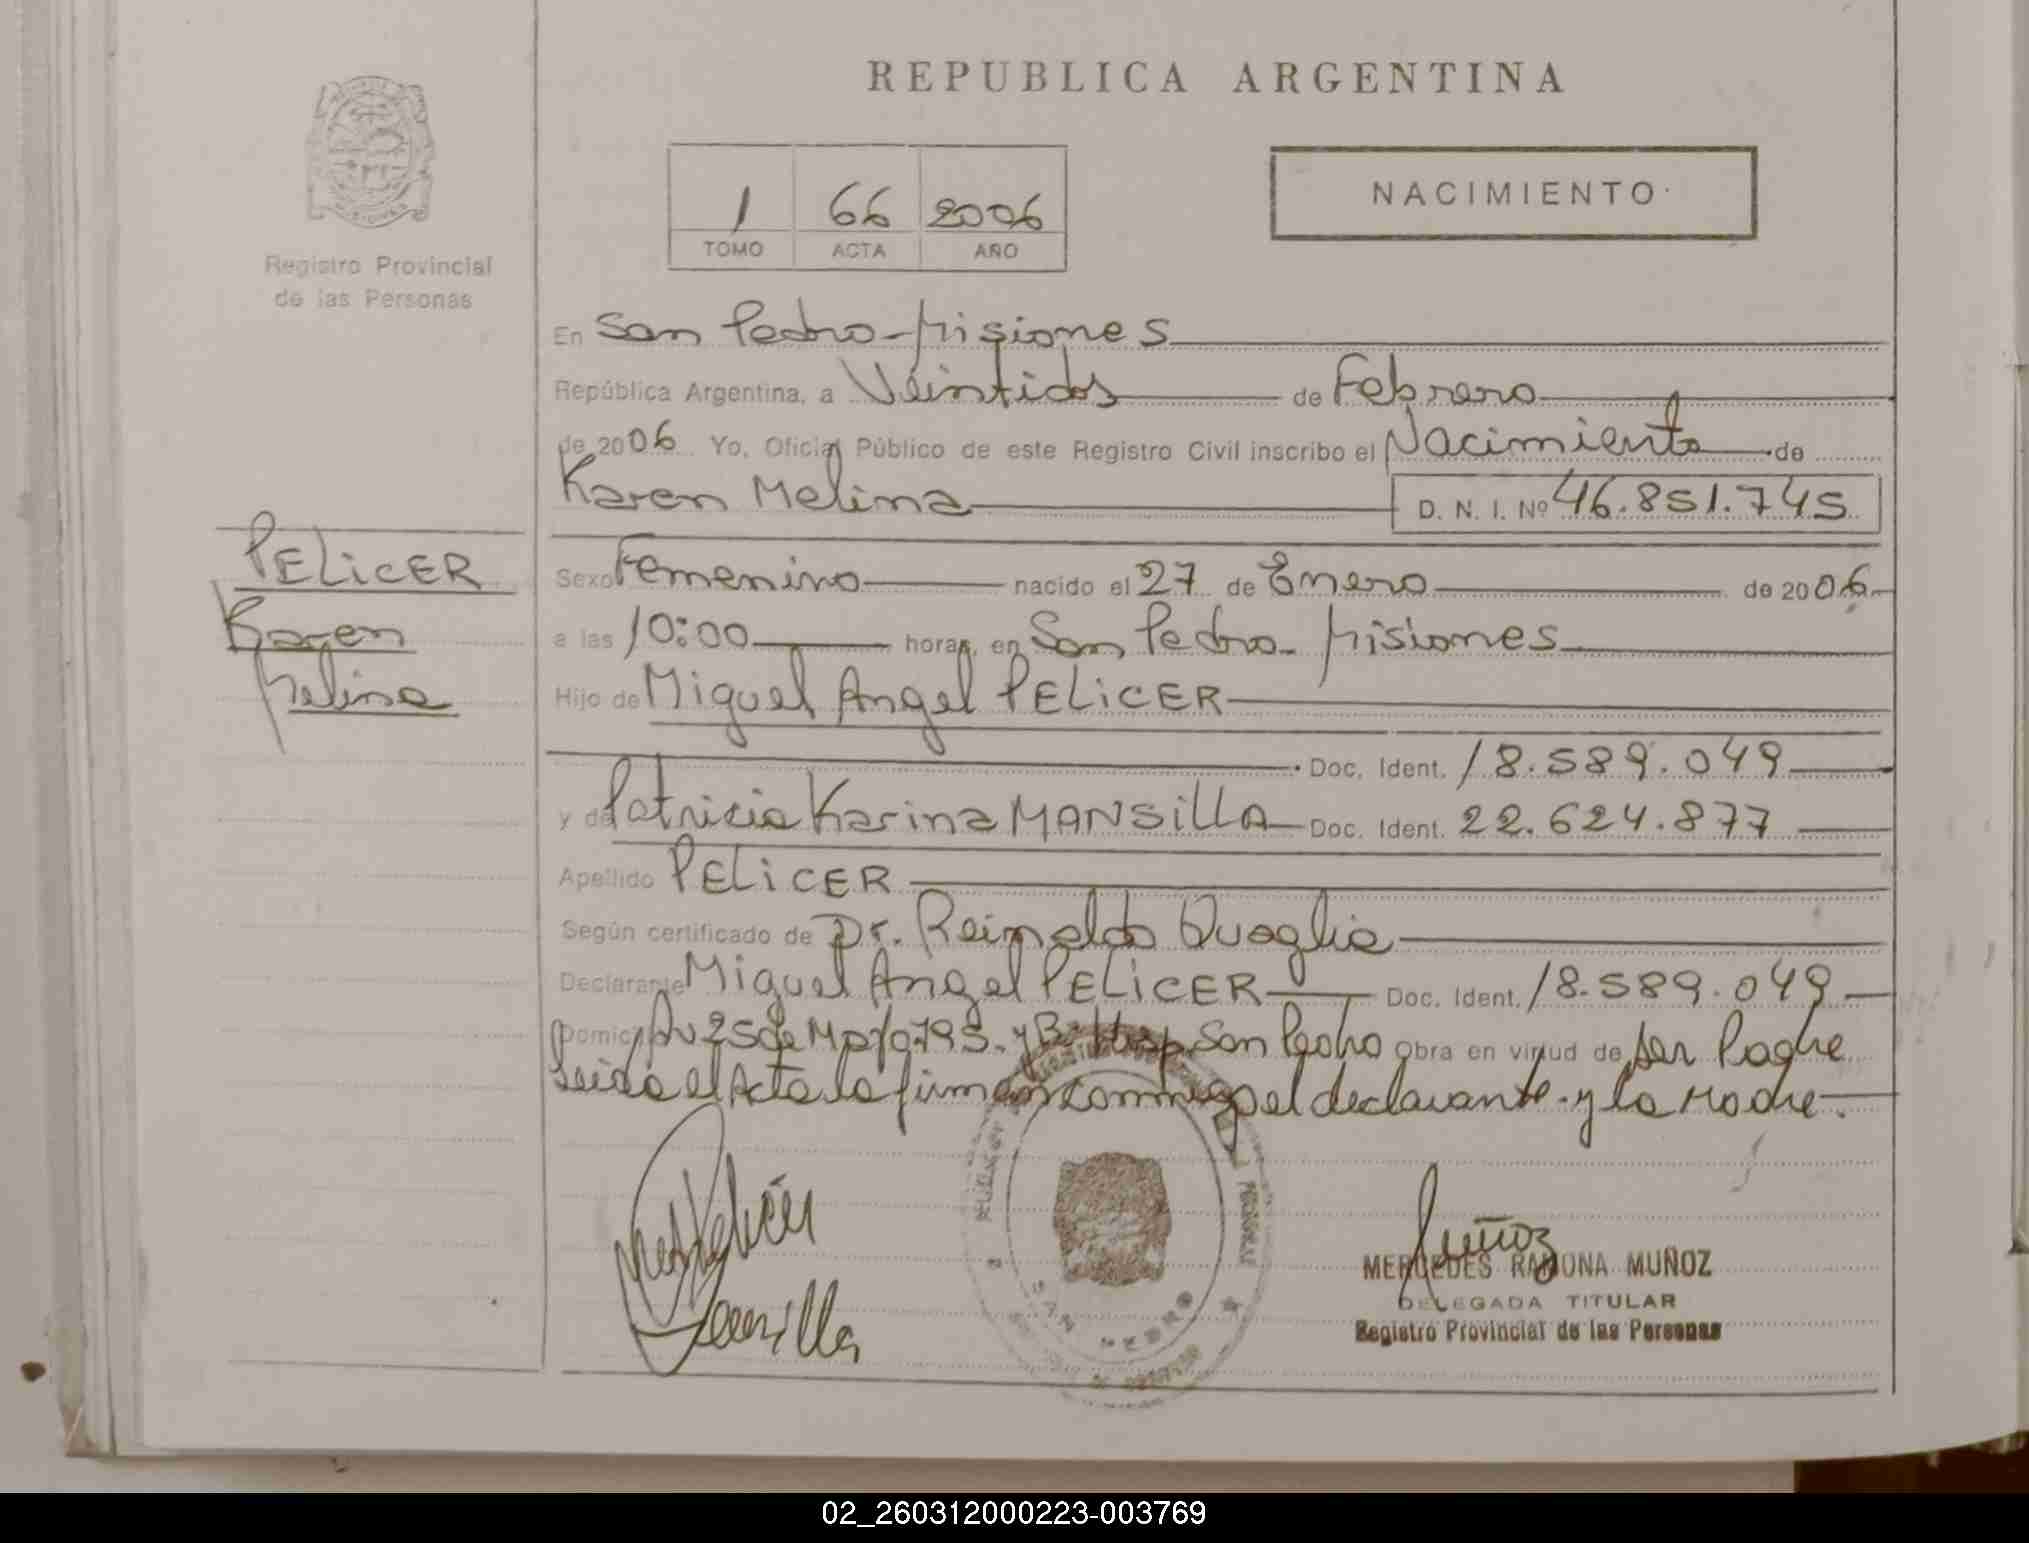 REPUBLICA ARGENTINA
1 66 2006
TOMO ACTA AÑO
NACIMIENTO
Registro Provincial
de las Personas
PELiCER
Karen
Melina
En San Pedro - Misiones
República Argentina, a Veintidos de Febrero
de 2006 Yo, Oficial Público de este Registro Civil inscribo el Nacimiento de
Karen Melina D. N. I. Nº 46.851.745
Sexo Femenino nacido el 27 de Enero de 2006
a las 10:00 horas, en San Pedro - Misiones
Hijo de Miguel Angel PELiCER
Doc. Ident. 18.589.049
y de Patricia Karina MANSiLLA Doc. Ident. 22.624.877
Apellido PELiCER
Según certificado de Dr. Reinaldo Quaglia
Declarante Miguel Angel PELiCER Doc. Ident. 18.589.049
Domic Av 25 de Mayo 795. y Bº Hosp San Pedro Obra en virtud de ser Padre
Leida el Acta la firman conmigo el declarante y la Madre.
Mansilla
SAN PEDRO
Muñoz
MERCEDES RAMONA MUÑOZ
DELEGADA TITULAR
Registro Provincial de las Personas
02_260312000223-003769